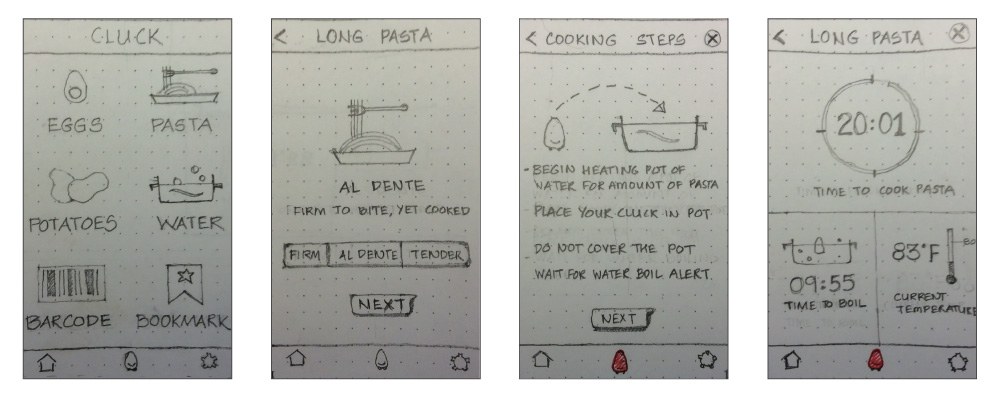 CLUCK
EGGS PASTA
POTATOES WATER
BARCODE BOOKMARK
< LONG PASTA
AL DENTE
FIRM TO BITE, YET COOKED
FIRM AL DENTE TENDER
NEXT
< COOKING STEPS X
- BEGIN HEATING POT OF
WATER FOR AMOUNT OF PASTA
PLACE YOUR CLUCK IN POT
DO NOT COVER THE POT
WAIT FOR WATER BOIL ALERT.
NEXT
< LONG PASTA X
20:01
TIME TO COOK PASTA
09:55
TIME TO BOIL
83°F
CURRENT
TEMPERATURE